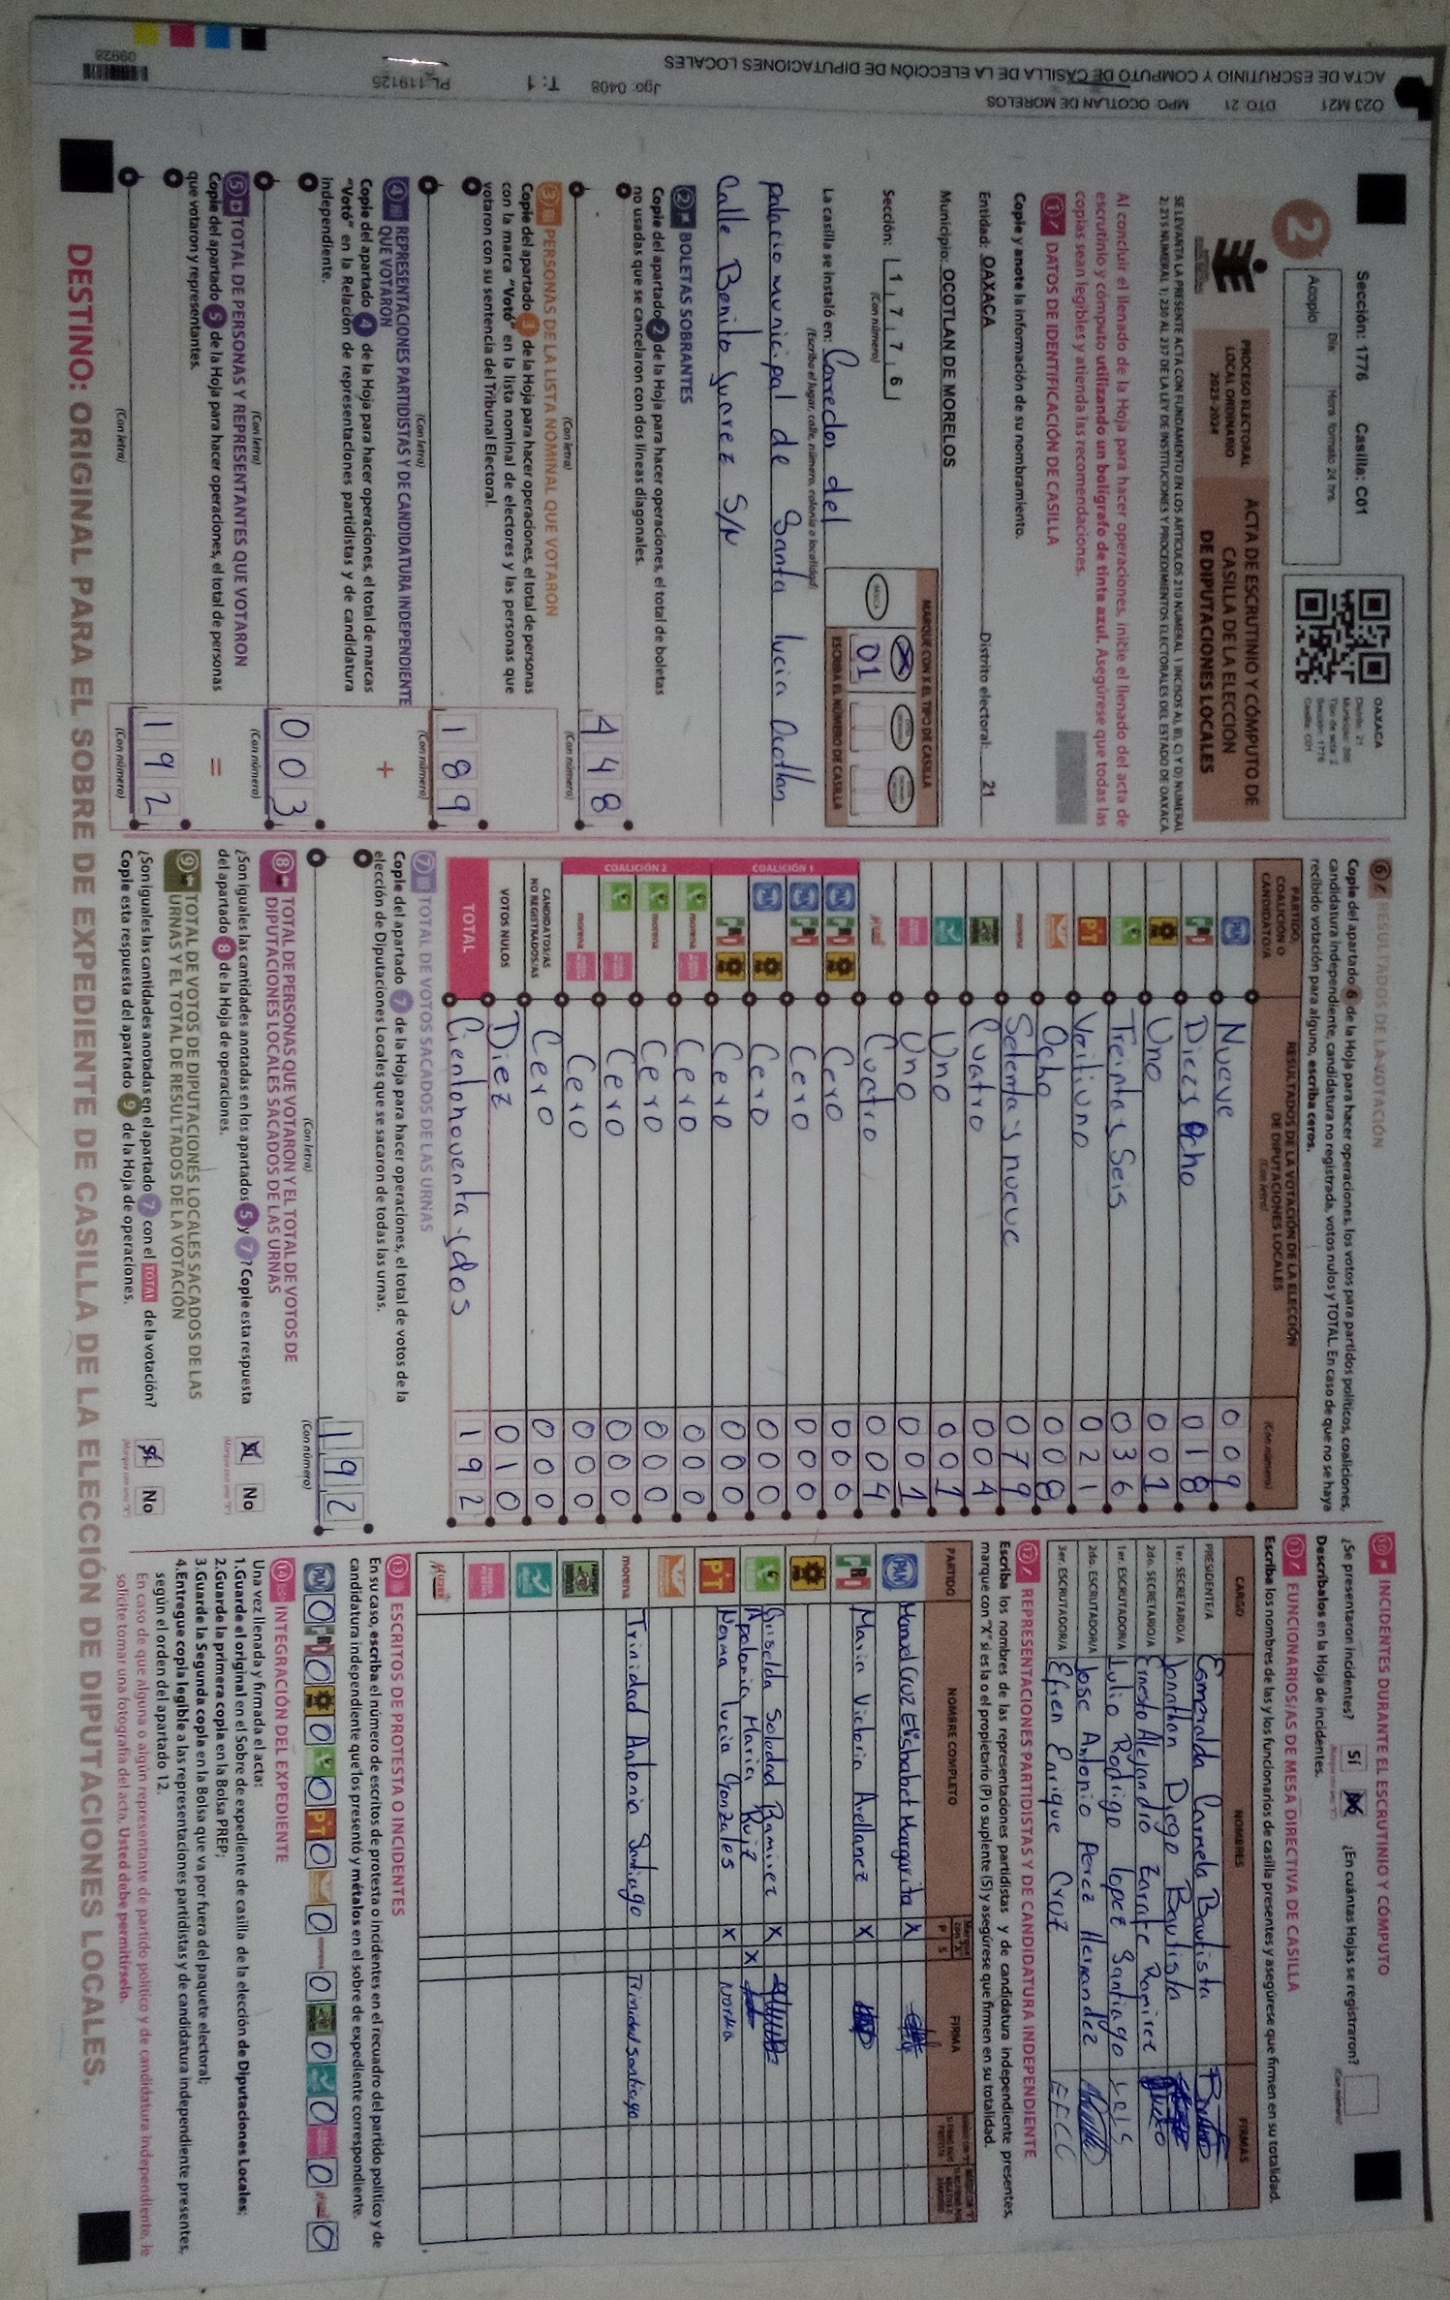 ACTA DE ESCRUTINIO Y CÓMPUTO DE CASILLA DE LA ELECCIÓN DE DIPUTACIONES LOCALES
023 M21 DTO: 21 MPO: OCOTLAN DE MORELOS
Jgo: 0408 T: 1 PL 119125
09928
Sección: 1776 Casilla: C01
2
Día: Hora formato 24 hrs
Acopio
OAXACA
Distrito: 21
Sección: 1776
Casilla: C01
PROCESO ELECTORAL
LOCAL ORDINARIO
2023-2024
ACTA DE ESCRUTINIO Y CÓMPUTO DE
CASILLA DE LA ELECCIÓN
DE DIPUTACIONES LOCALES
Al concluir el llenado de la Hoja para hacer operaciones, inicie el llenado del acta de
escrutinio y cómputo utilizando un bolígrafo de tinta azul. Asegúrese que todas las
copias sean legibles y atienda las recomendaciones.
1 DATOS DE IDENTIFICACIÓN DE CASILLA
Copie y anote la información de su nombramiento.
Entidad: OAXACA Distrito electoral: 21
Municipio: OCOTLAN DE MORELOS
Sección: 1 7 7 6
(Con número)
MARQUE CON X EL TIPO DE CASILLA
ESCRIBA EL NÚMERO DE CASILLA
01
La casilla se instaló en: Corredor del
(Escriba el lugar, calle, número, colonia o localidad)
palacio municipal de Santa lucia Ocotlan
Calle Benito Juarez S/N
2 BOLETAS SOBRANTES
Copie del apartado 2 de la Hoja para hacer operaciones, el total de boletas
no usadas que se cancelaron con dos líneas diagonales.
448
(Con letra) (Con número)
3 PERSONAS DE LA LISTA NOMINAL QUE VOTARON
Copie del apartado 3 de la Hoja para hacer operaciones, el total de personas
con la marca "Votó" en la lista nominal de electores y las personas que
votaron con su sentencia del Tribunal Electoral.
189
(Con letra) (Con número)
4 REPRESENTACIONES PARTIDISTAS Y DE CANDIDATURA INDEPENDIENTE
QUE VOTARON
+
Copie del apartado 4 de la Hoja para hacer operaciones, el total de marcas
"Votó" en la Relación de representaciones partidistas y de candidatura
independiente.
003
(Con letra) (Con número)
5 TOTAL DE PERSONAS Y REPRESENTANTES QUE VOTARON
=
Copie del apartado 5 de la Hoja para hacer operaciones, el total de personas
que votaron y representantes.
192
(Con letra) (Con número)
6 RESULTADOS DE LA VOTACIÓN
Copie del apartado 6 de la Hoja para hacer operaciones, los votos para partidos políticos, coaliciones,
candidatura independiente, candidatura no registrada, votos nulos y TOTAL. En caso de que no se haya
recibido votación para alguno, escriba ceros.
PARTIDO, COALICIÓN O CANDIDATO/A
RESULTADOS DE LA VOTACIÓN DE LA ELECCIÓN DE DIPUTACIONES LOCALES
(Con letra) (Con número)
PAN Nueve 009
PRI Diezs Ocho 018
Uno 001
Treinta y Seis 036
PT Veitiuno 021
Ocho 008
morena Setenta y nueve 079
Cuatro 004
Uno 001
Uno 001
Cuatro 004
COALICIÓN 1
PAN PRI Cero 000
PAN PRI Cero 000
PAN Cero 000
PRI Cero 000
COALICIÓN 2
morena Cero 000
morena Cero 000
Cero 000
morena Cero 000
CANDIDATOS/AS NO REGISTRADOS/AS Cero 000
VOTOS NULOS Diez 010
TOTAL Cientonoventa y dos 192
7 TOTAL DE VOTOS SACADOS DE LAS URNAS
Copie del apartado 7 de la Hoja para hacer operaciones, el total de votos de la
elección de Diputaciones Locales que se sacaron de todas las urnas.
192
(Con letra) (Con número)
8 TOTAL DE PERSONAS QUE VOTARON Y EL TOTAL DE VOTOS DE
DIPUTACIONES LOCALES SACADOS DE LAS URNAS
¿Son iguales las cantidades anotadas en los apartados 5 y 7? Copie esta respuesta
del apartado 8 de la Hoja de operaciones.
Sí No
9 TOTAL DE VOTOS DE DIPUTACIONES LOCALES SACADOS DE LAS
URNAS Y EL TOTAL DE RESULTADOS DE LA VOTACIÓN
¿Son iguales las cantidades anotadas en el apartado 7 con el TOTAL de la votación?
Copie esta respuesta del apartado 9 de la Hoja de operaciones.
Sí No
10 INCIDENTES DURANTE EL ESCRUTINIO Y CÓMPUTO
¿Se presentaron incidentes? Sí No ¿En cuántas Hojas se registraron?
Descríbalos en la Hoja de incidentes.
11 FUNCIONARIOS/AS DE MESA DIRECTIVA DE CASILLA
Escriba los nombres de las y los funcionarios de casilla presentes y asegúrese que firmen en su totalidad.
CARGO NOMBRES FIRMAS
PRESIDENTE/A Esmeralda Carmela Bautista
1er. SECRETARIO/A Jonathan Diego Bautista
2do. SECRETARIO/A Ernesto Alejandro Zarate Ramirez
1er. ESCRUTADOR/A Julio Rodrigo lopez Santiago
2do. ESCRUTADOR/A Jose Antonio Perez Hernandez
3er. ESCRUTADOR/A Efren Enrique Cruz EECC
12 REPRESENTACIONES PARTIDISTAS Y DE CANDIDATURA INDEPENDIENTE
Escriba los nombres de las representaciones partidistas y de candidatura independiente presentes,
marque con "X" si es la o el propietario (P) o suplente (S) y asegúrese que firmen en su totalidad.
PARTIDO NOMBRE COMPLETO P S FIRMA
PAN Margarita X
PRI Maria Victoria Arellanez X
Griselda Soledad Ramirez X
Apolonia Maria Ruiz X
PT Norma lucia Gonzales X Norma
morena Trinidad Antonio Santiago Trinidad Santiago
13 ESCRITOS DE PROTESTA O INCIDENTES
En su caso, escriba el número de escritos de protesta o incidentes en el recuadro del partido político y de
candidatura independiente que los presentó y métalos en el sobre de expediente correspondiente.
PAN 0 PRI 0 0 0 PT 0 0 morena 0 0 0 0 0
14 INTEGRACIÓN DEL EXPEDIENTE
Una vez llenada y firmada el acta:
1.Guarde el original en el Sobre de expediente de casilla de la elección de Diputaciones Locales;
2.Guarda la primera copia en la Bolsa PREP;
3.Guarda la Segunda copia en la Bolsa que va por fuera del paquete electoral;
4.Entregue copia legible a las representaciones partidistas y de candidatura independiente presentes,
según el orden del apartado 12.
En caso de que alguna o algún representante de partido político y de candidatura independiente, le
solicite tomar una fotografía del acta, Usted debe permitírselo.
DESTINO: ORIGINAL PARA EL SOBRE DE EXPEDIENTE DE CASILLA DE LA ELECCIÓN DE DIPUTACIONES LOCALES.